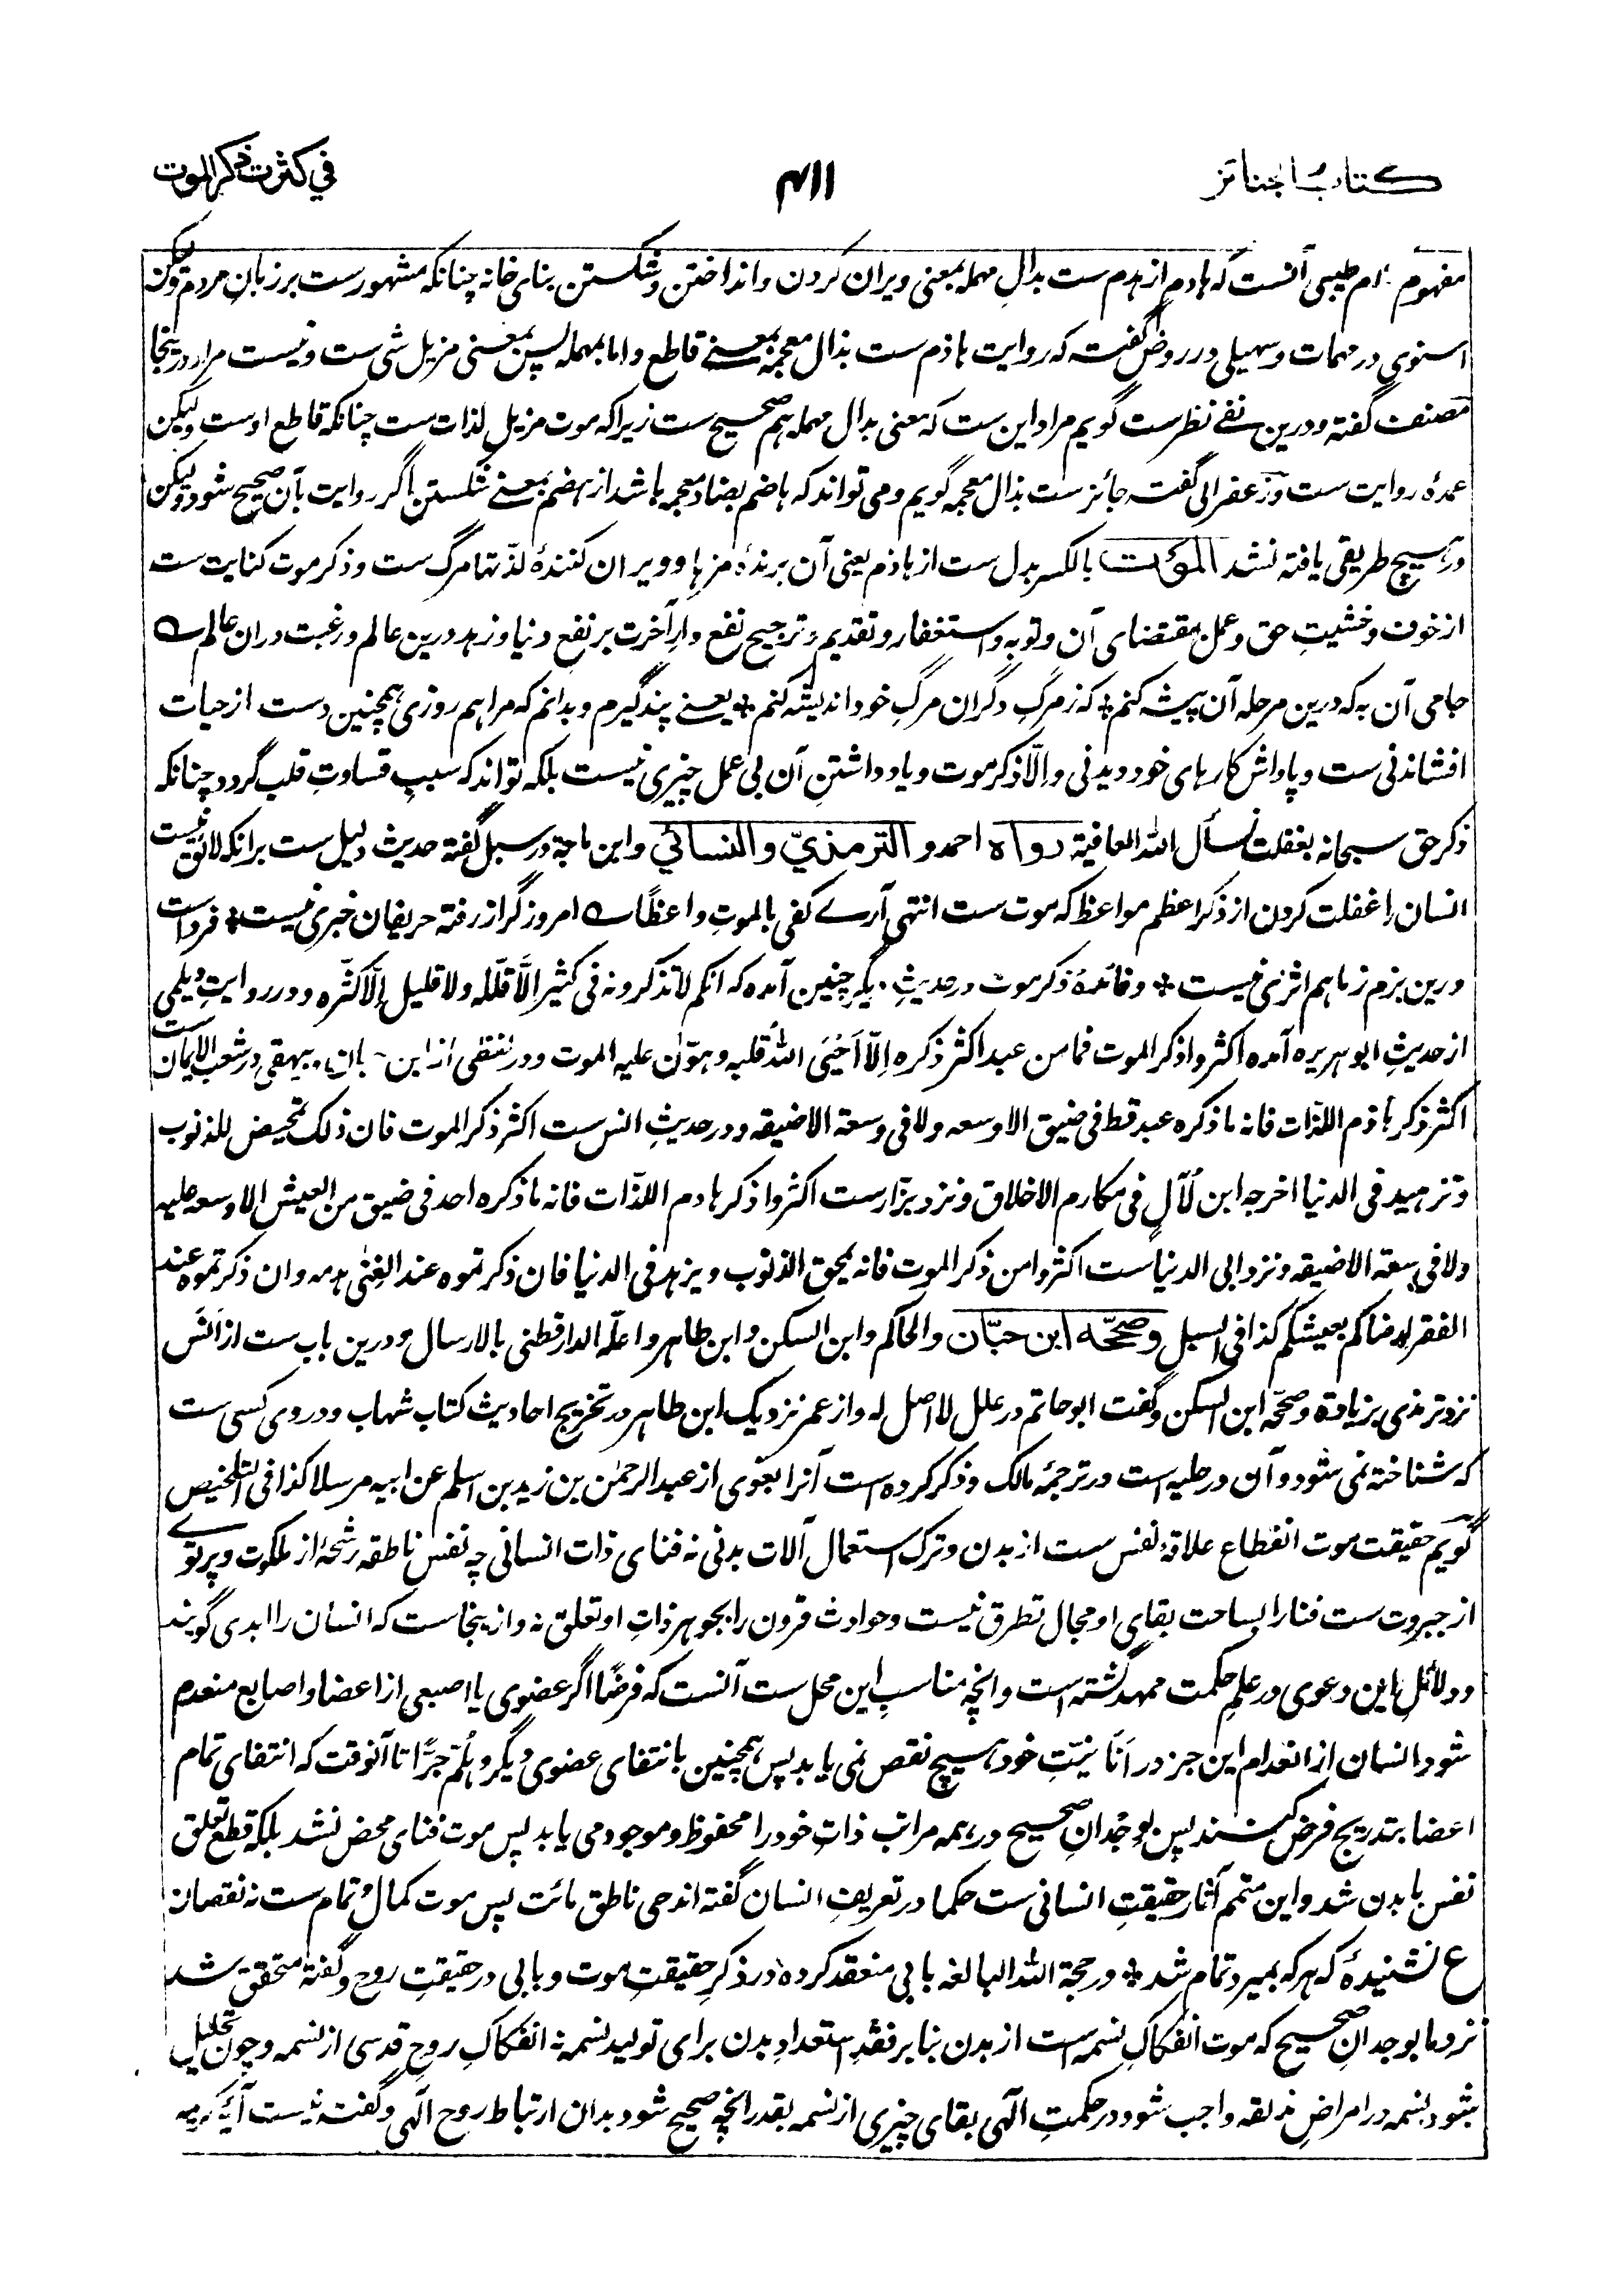 كتاب الجنائز
۴۱۱
في كثرت ذكر الموت
مفهوم کلام طیبی آنست که هادم از هدم ست بدالِ مهمله بمعنی ویران کردن و انداختن و شکستن بنای خانه چنانکه مشهورست بر زبانِ مردم ولیکن
اسنوی در مهمات و سهیلی در روض گفته که روایت هاذم ست بذال معجمه بمعنے قاطع و اما بمهمله پس بمعنی مزیل شی ست و نیست مراد درینجا
مصنف گفته و درین نفے نظرست گویم مراد این ست که معنی بدال مهمله هم صحیح ست زیرا که موت مزیلِ لذات ست چنانکه قاطع اوست ولیکن
عمدۀ روایت ست و زعفرانی گفته جائزست بذال معجمه گویم و می تواند که هاضم بضاد معجمه باشد از هضم بمعنے شکستن اگر روایت بآن صحیح شود ولیکن
در هیچ طریقی یافته نشد الموت بالکسر بدل ست از هاذم یعنی آن برندۀ مزها و ویران کنندۀ لذتها مرگ ست و ذکر موت کنایت ست
از خوف و خشیتِ حق و عمل بمقتضای آن و توبه و استغفار و تقدیم و ترجیح نفع دارِ آخرت بر نفع دنیا و زهد درین عالم و رغبت دران عالم ے
جامی آن به که درین مرحله آن پیشه کنم * که ز مرگِ دگران مرگِ خود اندیشه کنم * یعنے پند گیرم و بدانم که مرا هم روزی همچنین دست از حیات
افشاندنی ست و پاداش کارهای خود دیدنی والّا ذکر موت و یاد داشتنِ آن بی عمل چیزی نیست بلکه تواند که سببِ قساوتِ قلب گردد چنانکه
ذکر حق سبحانه بغفلت نسأل الله العافیة رواه احمد و الترمذيّ و النسائي و ابن ماجة در سبل گفته حدیث دلیل ست برانکه لائق نیست
انسان را غفلت کردن از ذکر اعظم مواعظ که موت ست انتهی آرے کفی بالموتِ واعظًا ے امروز گر از رفته حریفان خبری نیست * فرداست
درین بزم ز ما هم اثری نیست * و فائدۀ ذکر موت در حدیثِ دیگر چنین آمده که انکم لا تذکرونه فی کثیر الّا قلّله ولا قلیل الّا کثّره و در روایتِ دیلمی
از حدیثِ ابوهریره آمده اکثروا ذکر الموت فما من عبد اکثر ذکره الّا اَحْیَی اللهُ قلبه و هوّن علیه الموت و در لفظی از ابن حبان و بیهقی در شعب الایمان ست
اکثر ذکر هاذم اللذّات فانه ما ذکره عبد قط فی ضیق الا وسعه ولا فی وسعة الا ضیقه و در حدیثِ انس ست اکثر ذکر الموت فان ذلک تمحیض للذنوب
و تزهید فی الدنیا اخرجه ابن لآلٍ فی مکارم الاخلاق و نزد بزّارست اکثروا ذکر هادم اللذّات فانه ما ذکره احد فی ضیق من العیش الا وسعه علیه
ولا فی سعة الا ضیقه و نزد ابی الدنیا ست اکثروا من ذکر الموت فانه یمحق الذنوب و یزهد فی الدنیا فان ذکرتموه عند الغِنٰی هدمه و ان ذکرتموه عند
الفقر ارضاکم بعیشکم کذا فی السبل وصححه ابن حبّان والحاکم وابن السکن وابن طاهر و اعلّه الدارقطنی بالارسال و درین باب ست از اَنَس
نزد ترمذی بزیادة و صحّحه ابن السکن و گفت ابو حاتم در علل لا اصل له و از عمر نزدیک ابن طاهر در تخریج احادیث کتاب شهاب و دروی کسی ست
که شناخته نمی شود و آن در حلیه است در ترجمۀ مالک و ذکر کرده است آنرا بغوی از عبدالرحمٰن بن زید بن اسلم عن ابیه مرسلا کذا فی التلخیص
گویم حقیقت موت انقطاعِ علاقۀ نفس ست از بدن و ترک استعمال آلات بدنی نه فنای ذات انسانی چه نفس ناطقه رشحۀ از ملکوت و پرتوے
از جبروت ست فنا را بساحت بقای او مجال تطرق نیست و حوادث قرون را بجوهر ذاتِ او تعلق نه و ازینجاست که انسان را ابدی گویند
و دلائلِ این دعوی در علم حکمت ممهد گشته است و انچه مناسبِ این محل ست آنست که فرضًا اگر عضوی یا اصبعی از اعضا و اصابع منعدم
شود انسان از انعدام این جز در اَنَانیّتِ خود هیچ نقص نمی یابد پس همچنین بانتفای عضوی دیگر و هَلُمّ جرًّا تا آنوقت که انتفای تمام
اعضا بتدریج فرض کنند پس بوِجْدانِ صحیح در همه مراتب ذاتِ خود را محفوظ و موجود می یابد پس موت فنای محض نشد بلکه قطعِ تعلق
نفس با بدن شد و این متمم آثار حقیقتِ انسانی ست حکما در تعریفِ انسان گفته اند حی ناطق مائت پس موت کمال و تمام ست نه نقصان
ع نشنیدۀ که هر که بمیرد تمام شد * در حجة الله البالغه بابی منعقد کرده در ذکرِ حقیقتِ موت و بابی در حقیقتِ روح و گفته متحقق شد
نزد ما بوجدانِ صحیح که موت انفکاکِ نسمه است از بدن بنابر فقدِ استعدادِ بدن برای تولید نسمه نه انفکاکِ روحِ قدسی از نسمه و چون تحلیل
بشود نسمه در امراضِ مذلقه واجب شود در حکمتِ الٓهی بقای چیزی از نسمه بقدر انچه صحیح شود بدان ارتباط روح الٓهی و گفت نیست آیۀ کریمه